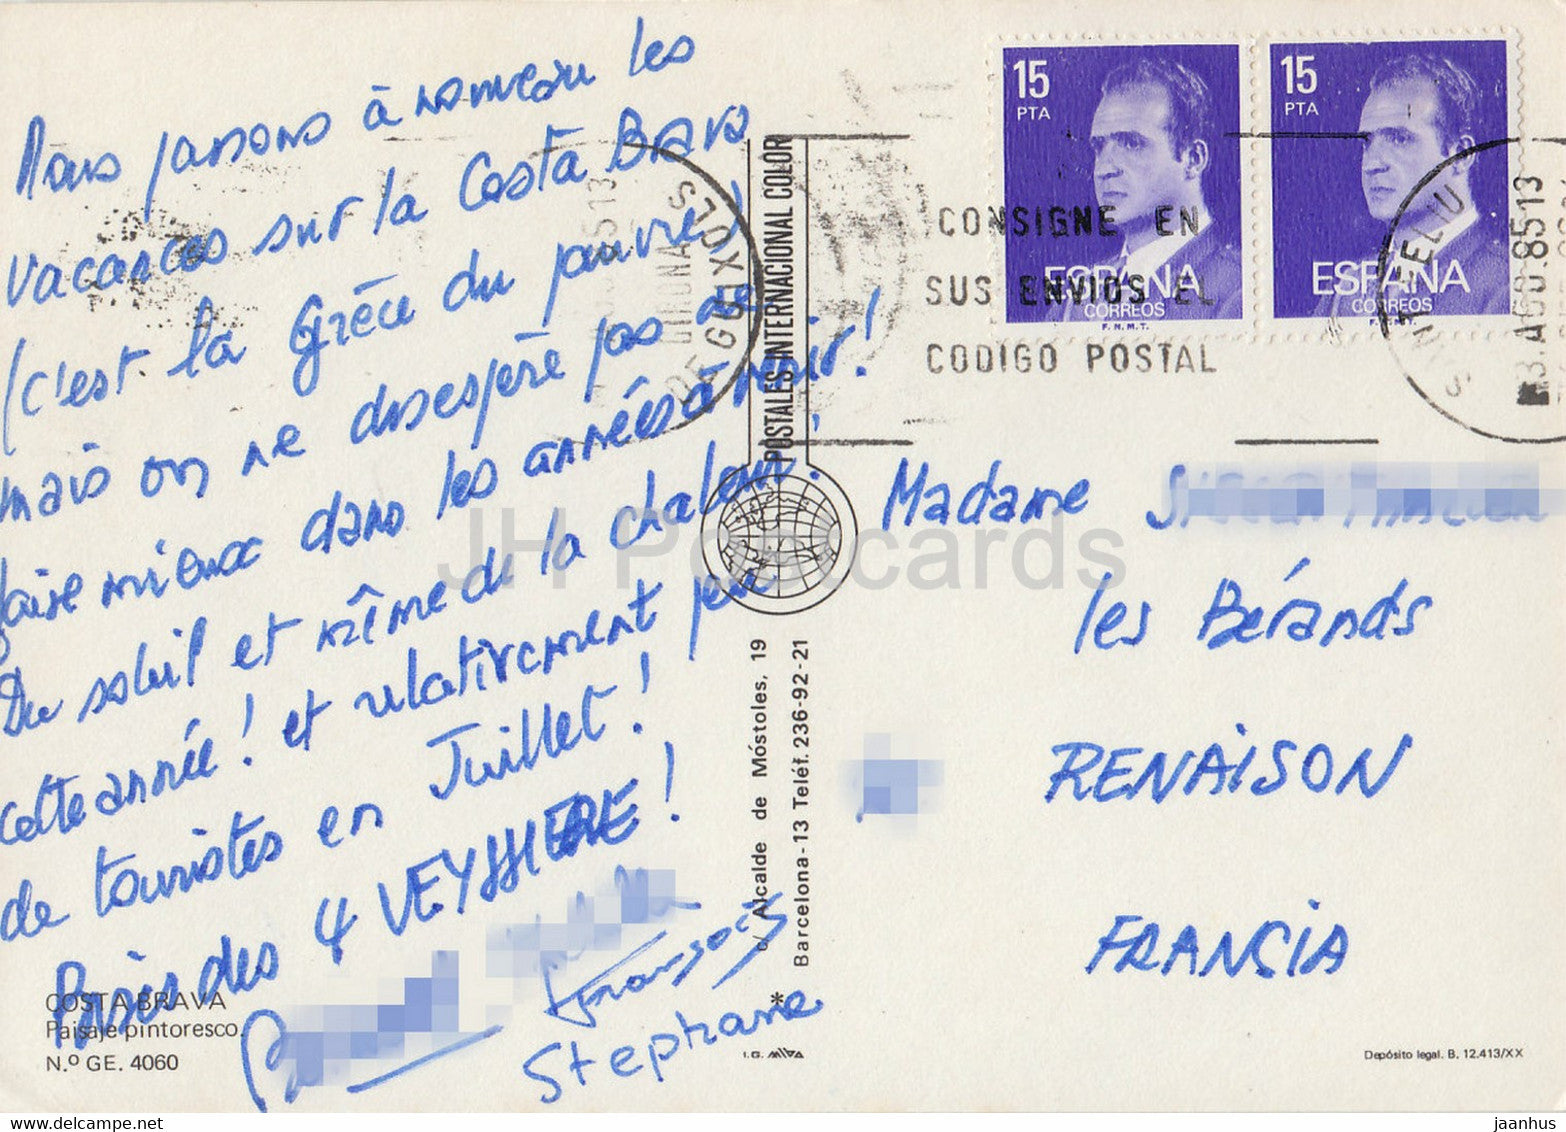 Nous passons à nouveau les
vacances sur la Costa Brava
(c'est la Grèce du pauvre)
mais on ne désespère pas de
faire mieux dans les années à venir!
Du soleil et même de la chaleur!
cette année! et relativement peu
de touristes en Juillet!
Bises des 4 VEYSSIERE!
François
Stephane
COSTA BRAVA
Paisaje pintoresco.
N.º GE. 4060
POSTALES INTERNACIONAL COLOR
c/ Alcalde de Móstoles, 19
Barcelona-13 Teléf. 236-92-21
I.G.
15
PTA
ESPAÑA
CORREOS
F.N.M.T.
15
PTA
ESPAÑA
CORREOS
F.N.M.T.
CONSIGNE EN
SUS ENVIOS EL
CODIGO POSTAL
DE GUIXOLS
GERONA
Madame
les Bérands
RENAISON
FRANCIA
Depósito legal. B. 12.413/XX
JH Postcards
jaanhus